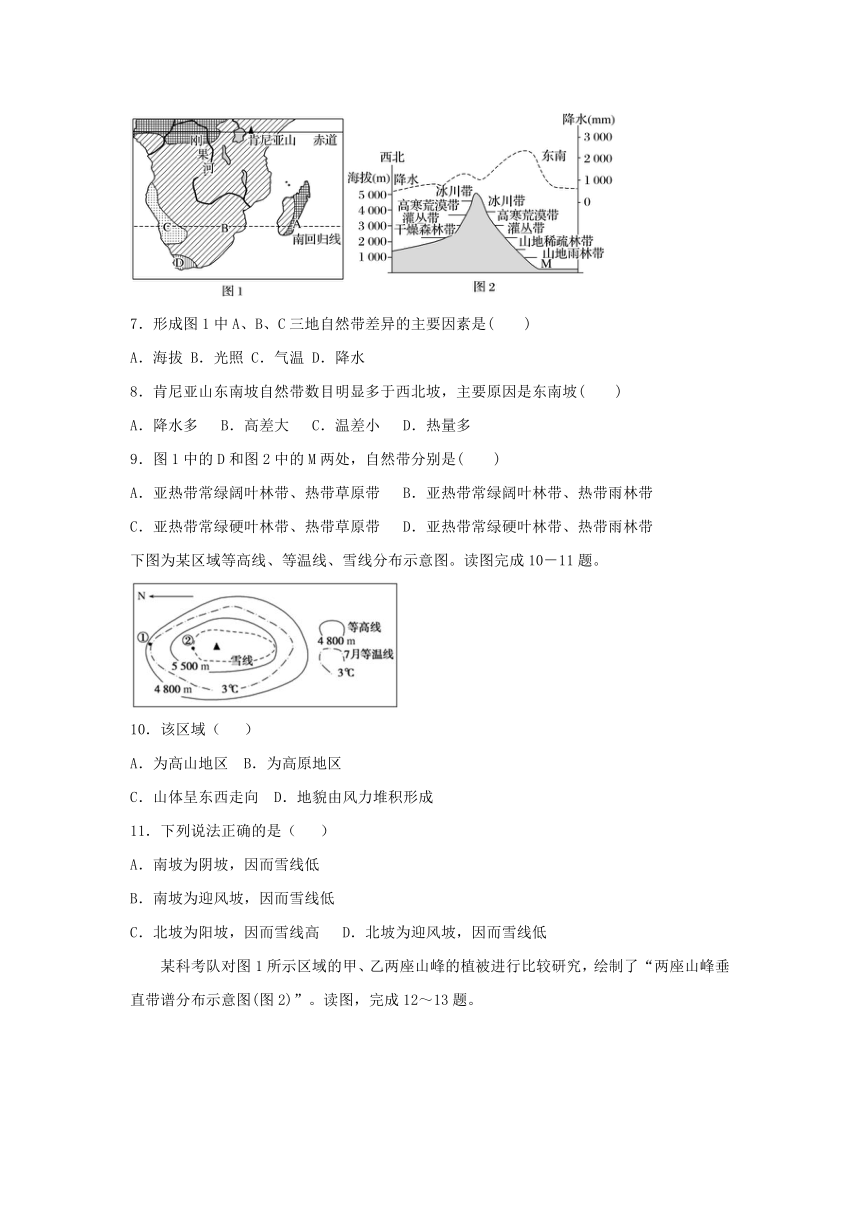 降水(mm)
3 000
2 000
1 000
0
西北
东南
海拔(m)
降水
5 000
4 000
3 000
2 000
1 000
冰川带
高寒荒漠带
灌丛带
干燥森林带
冰川带
高寒荒漠带
灌丛带
山地稀疏林带
山地雨林带
M
图2
刚果河
肯尼亚山
赤道
A
B
C
D
南回归线
图1
7．形成图1中A、B、C三地自然带差异的主要因素是( )
A．海拔 B．光照 C．气温 D．降水
8．肯尼亚山东南坡自然带数目明显多于西北坡，主要原因是东南坡( )
A．降水多 B．高差大 C．温差小 D．热量多
9．图1中的D和图2中的M两处，自然带分别是( )
A．亚热带常绿阔叶林带、热带草原带 B．亚热带常绿阔叶林带、热带雨林带
C．亚热带常绿硬叶林带、热带草原带 D．亚热带常绿硬叶林带、热带雨林带
下图为某区域等高线、等温线、雪线分布示意图。读图完成10－11题。
N
①
②
雪线
5 500 m
4 800 m
3℃
等高线
4 800 m
7月等温线
3℃
10．该区域（ ）
A．为高山地区 B．为高原地区
C．山体呈东西走向 D．地貌由风力堆积形成
11．下列说法正确的是（ ）
A．南坡为阴坡，因而雪线低
B．南坡为迎风坡，因而雪线低
C．北坡为阳坡，因而雪线高 D．北坡为迎风坡，因而雪线低
某科考队对图1所示区域的甲、乙两座山峰的植被进行比较研究，绘制了“两座山峰垂
直带谱分布示意图(图2)”。读图，完成12～13题。